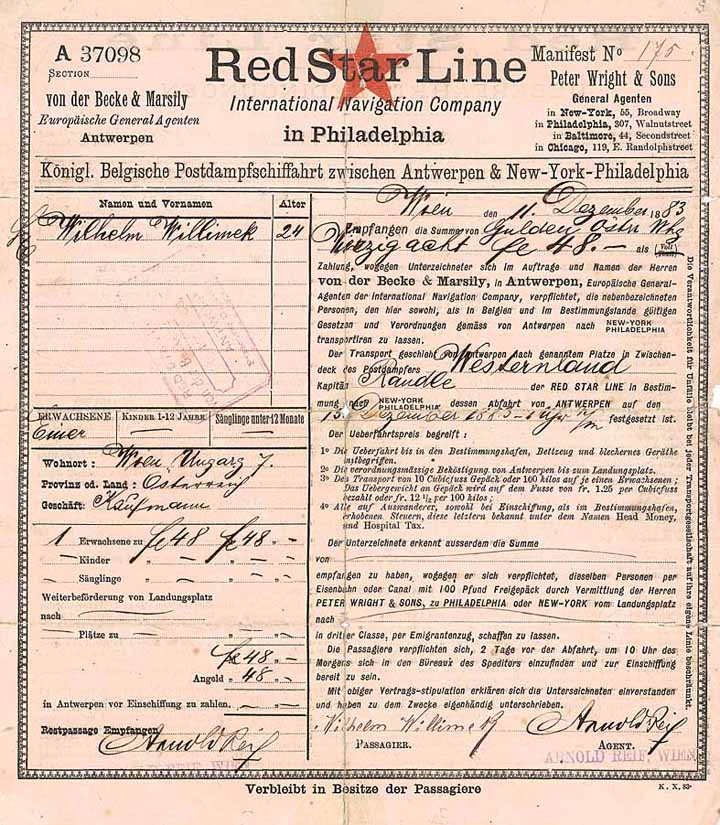 A 37098
SECTION
von der Becke & Marsily
Europäische General Agenten
Antwerpen
Red Star Line
International Navigation Company
in Philadelphia
Manifest No 175
Peter Wright & Sons
General Agenten
in New-York, 55, Broadway
in Philadelphia, 307, Walnutstreet
in Baltimore, 44, Secondstreet
in Chicago, 119, E. Randolphstreet
Königl. Belgische Postdampfschiffahrt zwischen Antwerpen & New-York-Philadelphia
Namen und Vornamen Alter
Wilhelm Willimek 24
ERWACHSENE KINDER 1-12 JAHRE Säuglinge unter 12 Monate
Einer — —
Wohnort : Wien, Ungarg 7.
Provinz od. Land : Osterreich
Geschäft: Kaufmann
1 Erwachsene zu fl 48 fl 48 . –
— Kinder
— Säuglinge
Weiterbeförderung von Landungsplatz
nach
— Plätze zu
fl 48 . –
Angeld „ 48 . –
in Antwerpen vor Einschiffung zu zahlen.
Restpassage Empfangen
Arnold Reif
ARNOLD REIF, WIEN
Wien den 11. Dezember 1883
Empfangen die Summe von Gulden östr Whg
Vierzigacht fl 48. – als Voll
Zahlung, wogegen Unterzeichneter sich im Auftrage und Namen der Herren
von der Becke & Marsily, in Antwerpen, Europäische General-
Agenten der International Navigation Company, verpflichtet, die nebenbezeichneten
Personen, den hier sowohl, als in Belgien und im Bestimmungslande gültigen
Gesetzen und Verordnungen gemäss von Antwerpen nach NEW-YORK PHILADELPHIA
transportiren zu lassen.
Der Transport geschieht von Antwerpen nach genanntem Platze in Zwischen-
deck des Postdampfers Westernland
Kapitän Randle der RED STAR LINE in Bestim-
mung nach NEW-YORK PHILADELPHIA dessen Abfahrt von ANTWERPEN auf den
15 Dezember 1883 1 Uhr festgesetzt ist.
Der Ueberfahrtspreis begreift :
1o Die Ueberfahrt bis in den Bestimmungshafen, Bettzeug und blechernes Geräthe
inbegriffen.
2o Die verordnungsmässige Beköstigung von Antwerpen bis zum Landungsplatz.
3o Den Transport von 10 Cubicfuss Gepäck oder 100 kilos auf je einen Erwachsenen ;
Das Uebergewicht an Gepäck wird auf dem Fusse von fr. 1.25 per Cubicfuss
bezahlt oder fr. 12 1/2 per 100 kilos ;
4o Alle auf Auswanderer, sowohl bei Einschiffung, als im Bestimmungshafen,
erhobenen Steuern, diese letztern bekannt unter dem Namen Head Money,
und Hospital Tax.
Der Unterzeichnete erkennt ausserdem die Summe
von
empfangen zu haben, wogegen er sich verpflichtet, dieselben Personen per
Eisenbahn oder Canal mit 100 Pfund Freigepäck durch Vermittlung der Herren
PETER WRIGHT & SONS, zu PHILADELPHIA oder NEW-YORK vom Landungsplatz
nach
in dritter Classe, per Emigrantenzug, schaffen zu lassen.
Die Passagiere verpflichten sich, 2 Tage vor der Abfahrt, um 10 Uhr des
Morgens sich in den Büreau's des Speditors einzufinden und zur Einschiffung
bereit zu sein.
Mit obiger Vertrags-stipulation erklären sich die Unterseichneten einverstanden
und haben zu dem Zwecke eigenhändig unterschrieben.
Wilhelm Willimek Arnold Reif
PASSAGIER. AGENT.
ARNOLD REIF, WIEN
Die Verantwortlichkeit für Unfälle bleibt bei jeder Transportgesellschaft auf ihre eigene Linie beschränkt.
Verbleibt in Besitze der Passagiere
K. X. 83